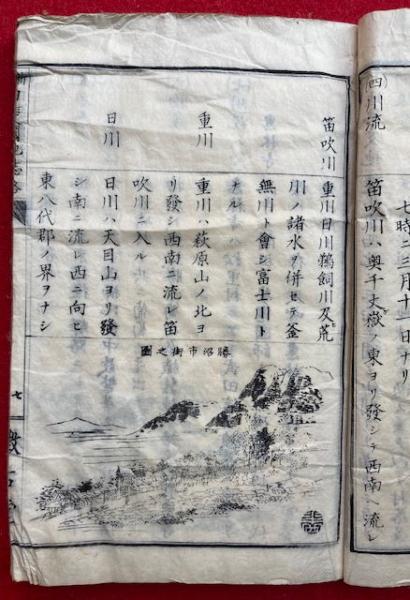 (四)川流
笛吹川ハ奥千丈嶽ノ東ヨリ發シテ西南ニ流レ
笛吹川
重川日川鵜飼川及荒
川ノ諸水ヲ併セテ釜
無川ト會シ富士川ト
ナル
重川
重川ハ萩原山ノ北ヨ
リ發シ西南ニ流レ笛
吹川ニ入ル
日川
日川ハ天目山ヨリ發
シ南ニ流レ西ニ向ヒ
東八代郡ノ界ヲナシ
勝沼市街之圖
七